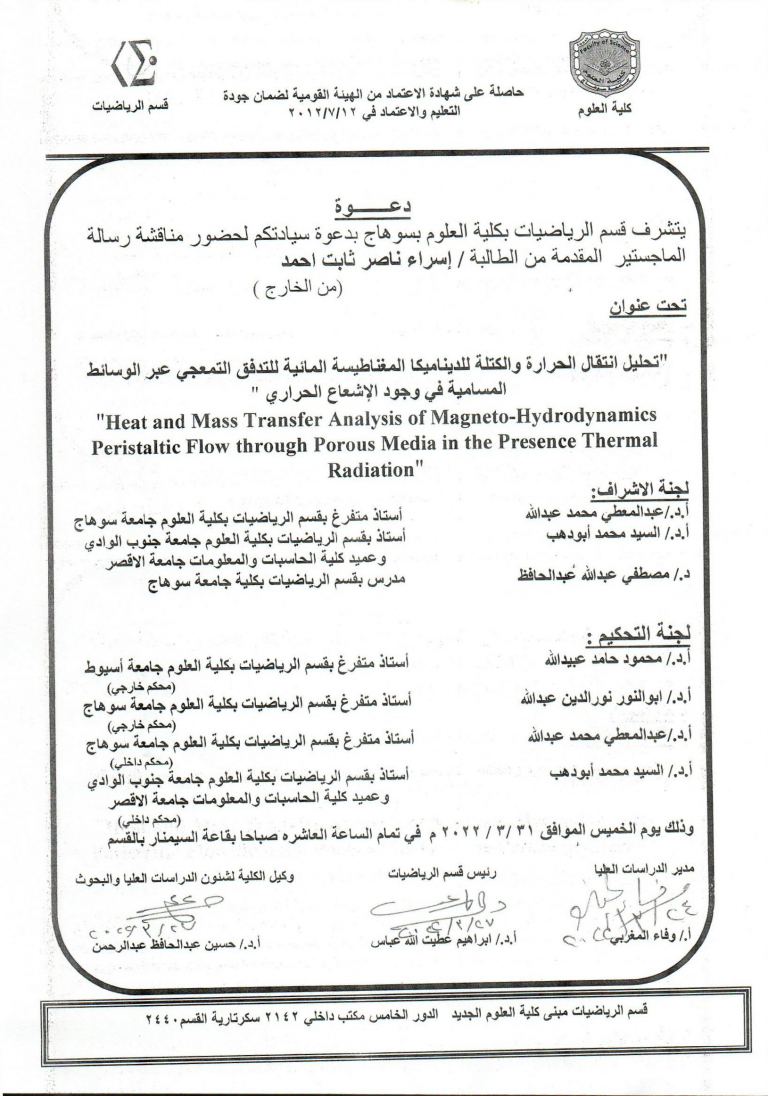 Faculty of Science
كلية العلوم
حاصلة على شهادة الاعتماد من الهيئة القومية لضمان جودة
التعليم والاعتماد في ٢٠١٢/٧/١٢
قسم الرياضيات
دعـــــوة
يتشرف قسم الرياضيات بكلية العلوم بسوهاج بدعوة سيادتكم لحضور مناقشة رسالة
الماجستير المقدمة من الطالبة / إسراء ناصر ثابت احمد
(من الخارج )
تحت عنوان
"تحليل انتقال الحرارة والكتلة للديناميكا المغناطيسة المائية للتدفق التمعجي عبر الوسائط
المسامية في وجود الإشعاع الحراري "
"Heat and Mass Transfer Analysis of Magneto-Hydrodynamics
Peristaltic Flow through Porous Media in the Presence Thermal
Radiation"
لجنة الاشراف:
أ.د./عبدالمعطي محمد عبدالله أستاذ متفرغ بقسم الرياضيات بكلية العلوم جامعة سوهاج
أ.د./ السيد محمد أبودهب أستاذ بقسم الرياضيات بكلية العلوم جامعة جنوب الوادي
وعميد كلية الحاسبات والمعلومات جامعة الاقصر
د./ مصطفي عبدالله عبدالحافظ مدرس بقسم الرياضيات بكلية جامعة سوهاج
لجنة التحكيم :
أ.د./ محمود حامد عبيدالله أستاذ متفرغ بقسم الرياضيات بكلية العلوم جامعة أسيوط
(محكم خارجي)
أ.د./ ابوالنور نورالدين عبدالله أستاذ متفرغ بقسم الرياضيات بكلية العلوم جامعة سوهاج
(محكم خارجي)
أ.د./عبدالمعطي محمد عبدالله أستاذ متفرغ بقسم الرياضيات بكلية العلوم جامعة سوهاج
(محكم داخلي)
أ.د./ السيد محمد أبودهب أستاذ بقسم الرياضيات بكلية العلوم جامعة جنوب الوادي
وعميد كلية الحاسبات والمعلومات جامعة الاقصر
(محكم داخلي)
وذلك يوم الخميس الموافق ٣١ /٣ / ٢٠٢٢ م في تمام الساعة العاشره صباحا بقاعة السيمنار بالقسم
مدير الدراسات العليا رئيس قسم الرياضيات وكيل الكلية لشئون الدراسات العليا والبحوث
أ./ وفاء المغربي أ.د./ ابراهيم عطيت الله عباس أ.د./ حسين عبدالحافظ عبدالرحمن
قسم الرياضيات مبنى كلية العلوم الجديد الدور الخامس مكتب داخلي ٢١٤٢ سكرتارية القسم٢٤٤٠